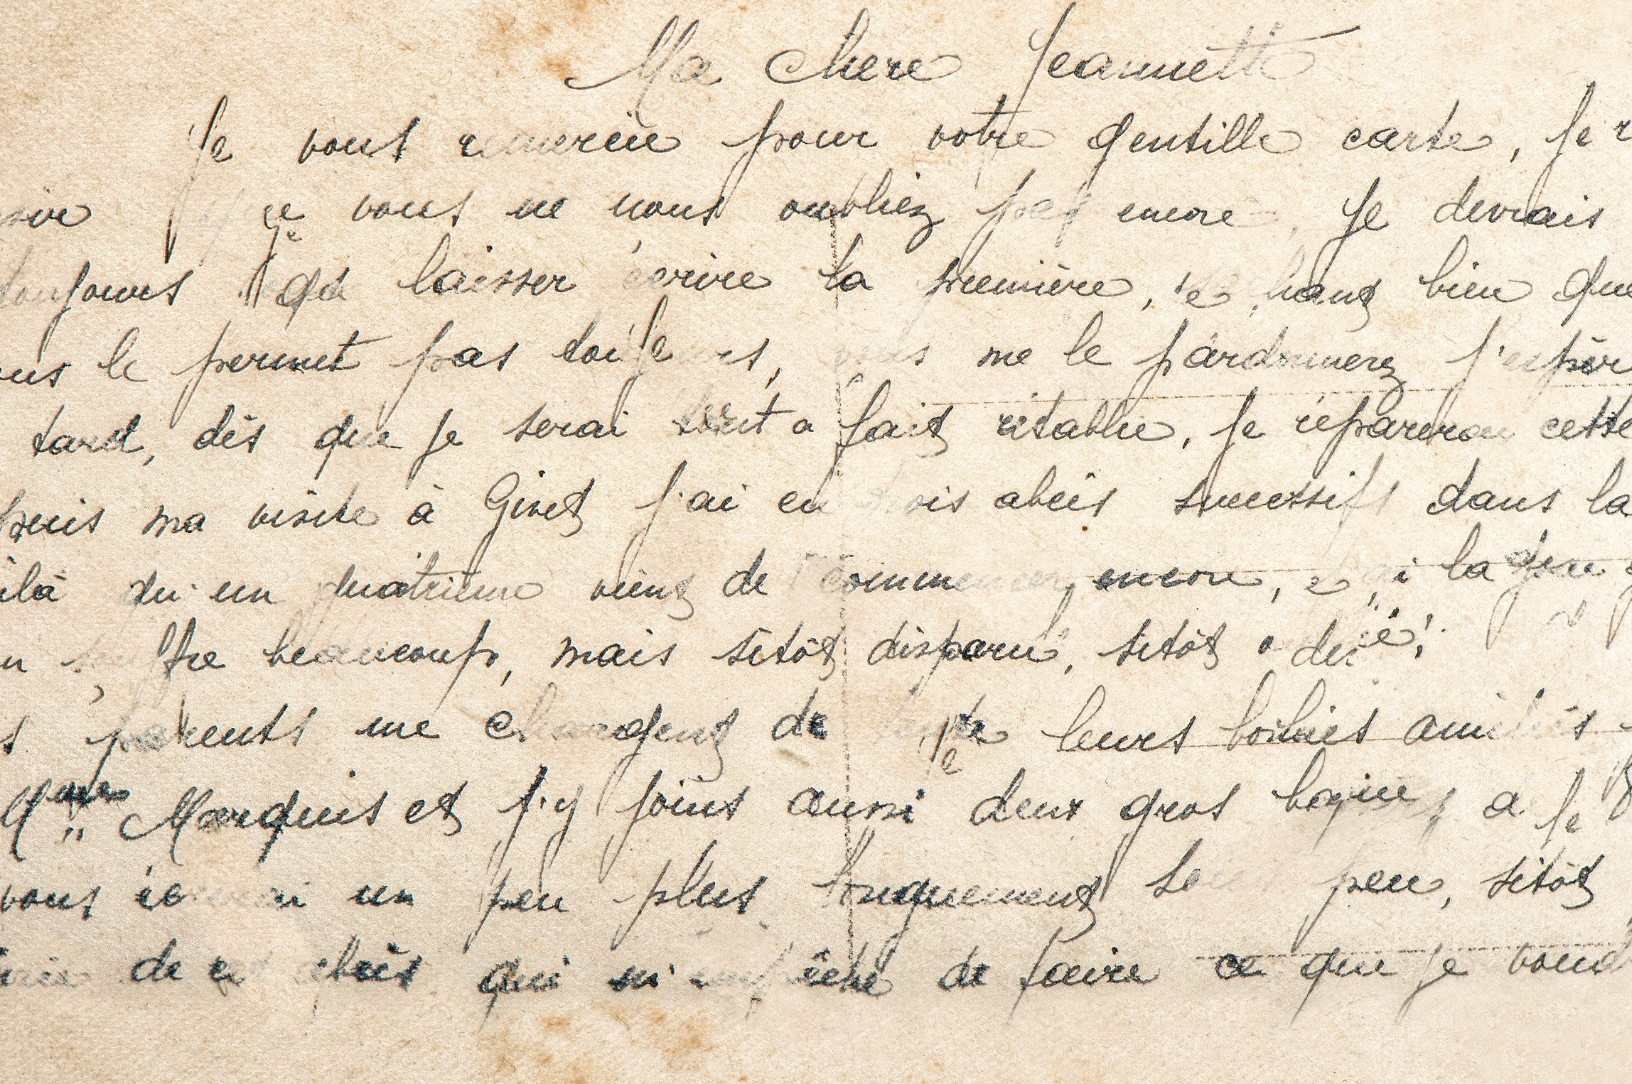 Ma chere Jeannette
Je vous remercie pour votre gentille carte, Je
vous ne nous oubliez pas encore. Je devrais
toujours laisser écrire la première, bien que
le permet pas me le pardonnerez j'espèr
tard, dès que je serai tout a fait rétablie, je réparerai cette
puis ma visite à Givet j'ai eu trois abcès successifs dans la
ilà qu'un quatrième vient de commencer encore, la
beaucoup, mais sitôt disparu, sitôt
parents me chargent de leurs bonnes amitiés
Marquis et j'y joins aussi deux gros
vous un peu plus longuement sous peu, sitôt
de abcès qui m'empêche de faire ce que je voud